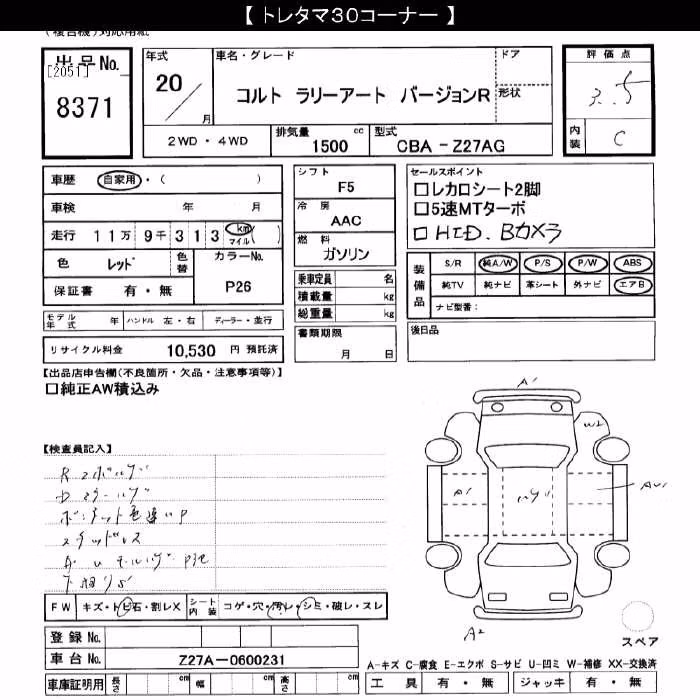 【 トレタマ30コーナー 】
(複合機)対応用紙
出品No.
[2051]
8371
年式
20 / 月
車名・グレード
コルト ラリーアート バージョンR
ドア
形状
評価点
3.5
内装 C
2WD・4WD
排気量 1500 cc
型式 CBA-Z27AG
車歴 自家用・( )
車検 年 月
走行 11万9千313 km マイル( )
色 レッド
色替
カラーNo. P26
保証書 有・無
シフト F5
冷房 AAC
燃料 ガソリン
乗車定員 名
積載量 kg
総重量 kg
書類期限 月 日
セールスポイント
□レカロシート2脚
□5速MTターボ
□HID. Bカメラ
装備品
S/R 純A/W P/S P/W ABS
純TV 純ナビ 革シート 外ナビ エアB
ナビ型番:
後日品
モデル年式 年 ハンドル 左・右 ディーラー・並行
リサイクル料金 10,530 円 預託済
【出品店申告欄(不良箇所・欠品・注意事項等)】
□純正AW積込み
【検査員記入】
ボンネット色違いP
スタッドレス
下廻りS
FW キズ・トビ石・割レX
シート内装 コゲ・穴・汚レ・シミ・破レ・スレ
A1
W2
A1
A2
スペア
登録No.
車台No. Z27A-0600231
車庫証明用 長さ cm 幅 cm 高さ cm
A-キズ C-腐食 E-エクボ S-サビ U-凹ミ W-補修 XX-交換済
工具 有・無 ジャッキ 有・無